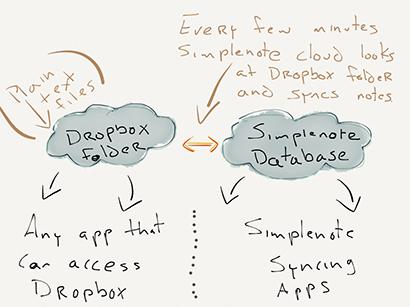 Every few minutes
Simplenote cloud looks
at Dropbox folder
and syncs notes
Plain
text
files
Dropbox
folder
Simplenote
Database
Any app that
can access
Dropbox
Simplenote
Syncing
Apps